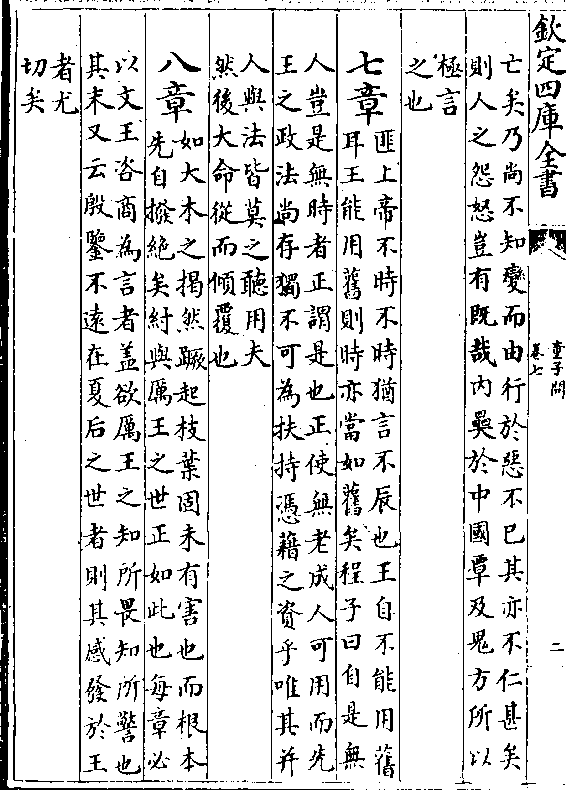 欽定四庫全書
童子問
卷七
二
亡矣乃尚不知變而由行於惡不已其亦不仁甚矣
則人之怨怒豈有既哉内奰於中國覃及鬼方所以
極言
之也
七章
匪上帝不時不時猶言不辰也王自不能用舊
耳王能用舊則時亦當如舊矣程子曰自是無
人豈是無時者正謂是也正使無老成人可用而先
王之政法尚存獨不可為扶持憑藉之資乎唯其并
人與法皆莫之聽用夫
然後大命從而傾覆也
八章
如大本之揭然蹶起枝葉固未有害也而根本
先自撥絶矣紂與厲王之世正如此也每章必
以文王咨商為言者盖欲厲王之知所畏知所警也
其末又云殷鑒不遠在夏后之世者則其感發於王
者尤
切矣